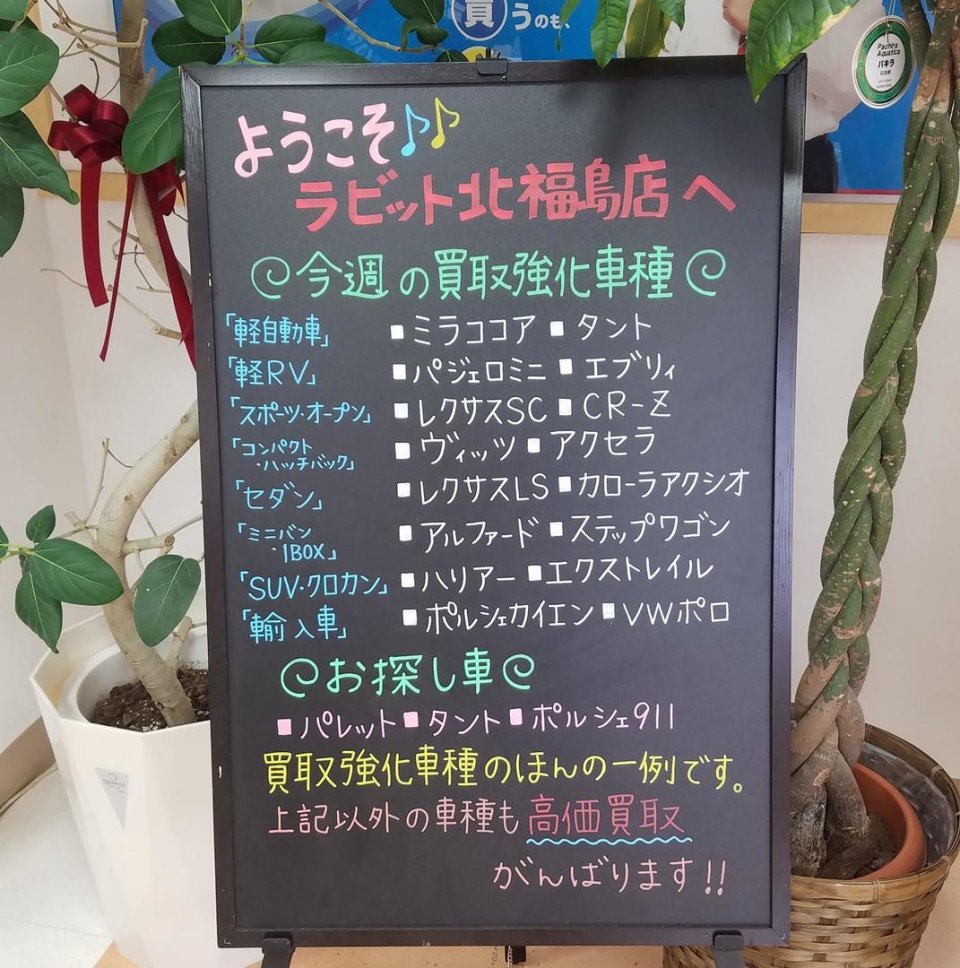 買うのも、
Pachira
Aquatica
パキラ
ようこそ♪♪
ラビット北福島店へ
今週の買取強化車種
「軽自動車」 ■ミラココア ■タント
「軽RV」 ■パジェロミニ ■エブリィ
「スポーツ・オープン」 ■レクサスSC ■CR-Z
「コンパクト
・ハッチバック」 ■ヴィッツ ■アクセラ
「セダン」 ■レクサスLS ■カローラアクシオ
「ミニバン
・1BOX」 ■アルファード ■ステップワゴン
「SUV・クロカン」 ■ハリアー ■エクストレイル
「輸入車」 ■ポルシェカイエン ■VWポロ
お探し車
■パレット ■タント ■ポルシェ911
買取強化車種のほんの一例です。
上記以外の車種も高価買取
がんばります!!